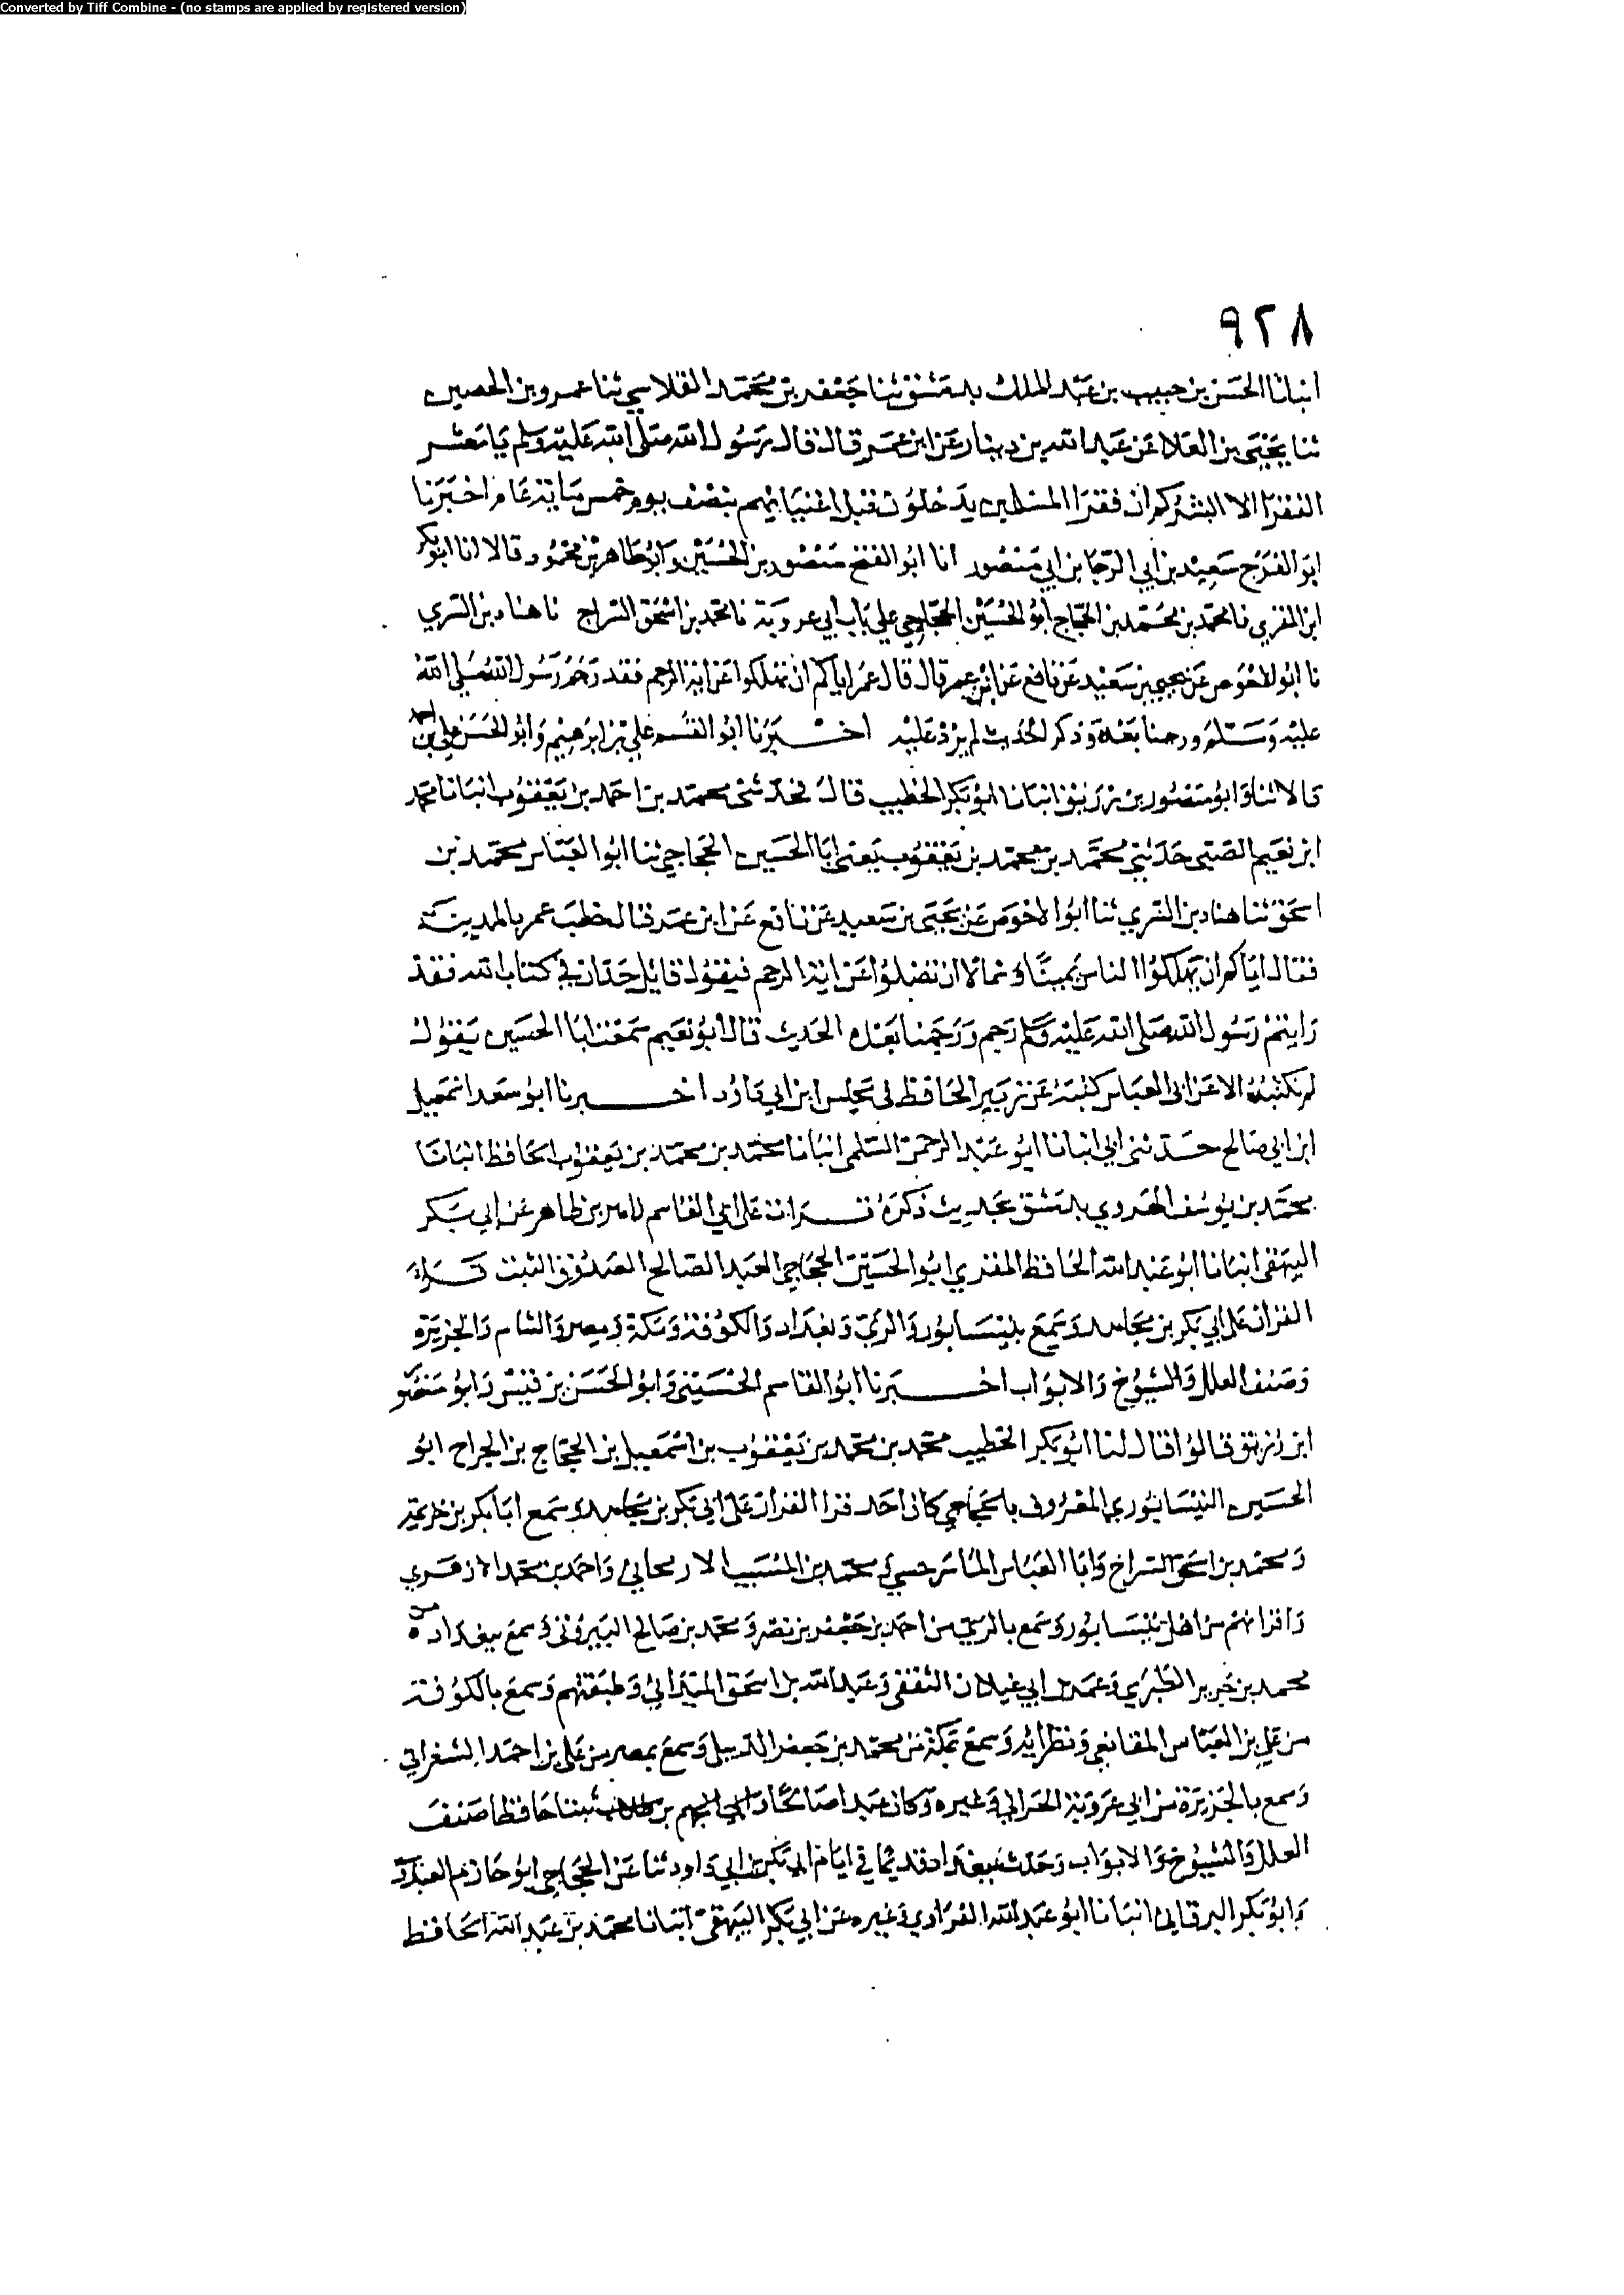 Converted by Tiff Combine - (no stamps are applied by registered version)
٩٢٨
انبانا الحسن بن حبيب بن عبد الملك بدمشق ثنا جعفر بن محمد القلاسي ثنا عمرو بن الحصين
ثنا يحيى بن العلا عن عبد الله بن دينار عن ابن عمر قال قال رسول الله صلى الله عليه وسلم يا معشر
الفقرا الا ابشركم ان فقرا المسلمين يدخلون قبل اغنيايهم بنصف يوم خمس ماية عام اخبرنا
ابو الفرج سعيد بن ابي الرجا بن ابي منصور انا ابو الفتح منصور بن الحسين وابو طاهر بن محمود قالا انا ابو بكر
ابن المقري نا محمد بن محمد بن الحجاج ابو الحسين الحجاجي على باب ابي عروبة نا محمد بن اسحق السراج نا هناد بن السري
نا ابو الاحوص عن يحيى بن سعيد عن نافع عن ابن عمر قال قال عمر اياكم ان تهلكوا عن اية الرجم فقد رجم رسول الله صلى الله
عليه وسلم ورجمنا بعده وذكر الحديث لم يزد عليه اخبرنا ابو القسم علي بن ابرهيم وابو الحسن علي بن احمد
قالا ثنا وابو منصور بن زريق انبانا ابو بكر الخطيب قال فحدثني محمد بن احمد بن يعقوب انبانا محمد
ابن نعيم الضبي حدثني محمد بن محمد بن يعقوب يعني ابا الحسين الحجاجي ثنا ابو العباس محمد بن
اسحق ثنا هناد بن السري ثنا ابو الاحوص عن يحيى بن سعيد عن نافع عن ابن عمر قال خطب عمر بالمدينة
فقال اياكم ان تهلكوا الناس يمينا وشمالا ان تضلوا عن اية الرجم فيقول قايل حدان في كتاب الله فقد
رايتم رسول الله صلى الله عليه وسلم رجم ورجمنا بعده الحديث قال ابو نعيم سمعت ابا الحسين يقول
لم نكتبه الا عن ابي العباس كتبته عن زبير الحافظ في مجلس ابن ابي داود اخبرنا ابو سعد اسمعيل
ابن ابي صالح حدثني ابي انبانا ابو عبد الرحمن السلمي انبانا محمد بن محمد بن يعقوب الحافظ انبانا
محمد بن يوسف الهروي بدمشق بحديث ذكره قرات على ابي القاسم زاهر بن طاهر عن ابي بكر
البيهقي انبانا ابو عبد الله الحافظ المقري ابو الحسين الحجاجي العبد الصالح الصدوق الثبت قرا
القران على ابي بكر بن مجاهد وسمع بنيسابور والري وبغداد والكوفة ومكة ومصر والشام والجزيرة
وصنف العلل والشيوخ والابواب اخبرنا ابو القاسم الحسيني وابو الحسن بن قبيس وابو منصور
ابن زريق قالوا قال لنا ابو بكر الخطيب محمد بن محمد بن يعقوب بن اسمعيل بن الحجاج بن الجراح ابو
الحسين النيسابوري المعروف بالحجاجي كان احد قرا القران على ابي بكر بن مجاهد وسمع ابا بكر بن خزيمة
ومحمد بن اسحق السراج وابا العباس الماسرجسي ومحمد بن المسيب الارغياني واحمد بن محمد الازهري
واقرانهم من اهل نيسابور وسمع بالري من احمد بن جعفر بن نصر ومحمد بن صالح وسمع ببغداد من
محمد بن جرير الطبري وعمر بن ابي غيلان الثقفي وعبد الله بن اسحق المدايني وطبقتهم وسمع بالكوفة
من علي بن العباس المقانعي ونظرايه وسمع بمكة من محمد بن جعفر الديبلي وسمع بمصر من علي بن احمد
وسمع بالجزيرة من ابي عروبة الحراني وغيره وكان عبدا صالحا ثبتا حافظا صنف
العلل والشيوخ والابواب وحدث ببغداد قديما في ايام ابي بكر بن ابي داود ثنا عن الحجاجي ابو حازم العبدوي
وابو بكر البرقاني انبانا ابو عبد الله الفراوي وغيره عن ابي بكر البيهقي انبانا محمد بن عبد الله الحافظ